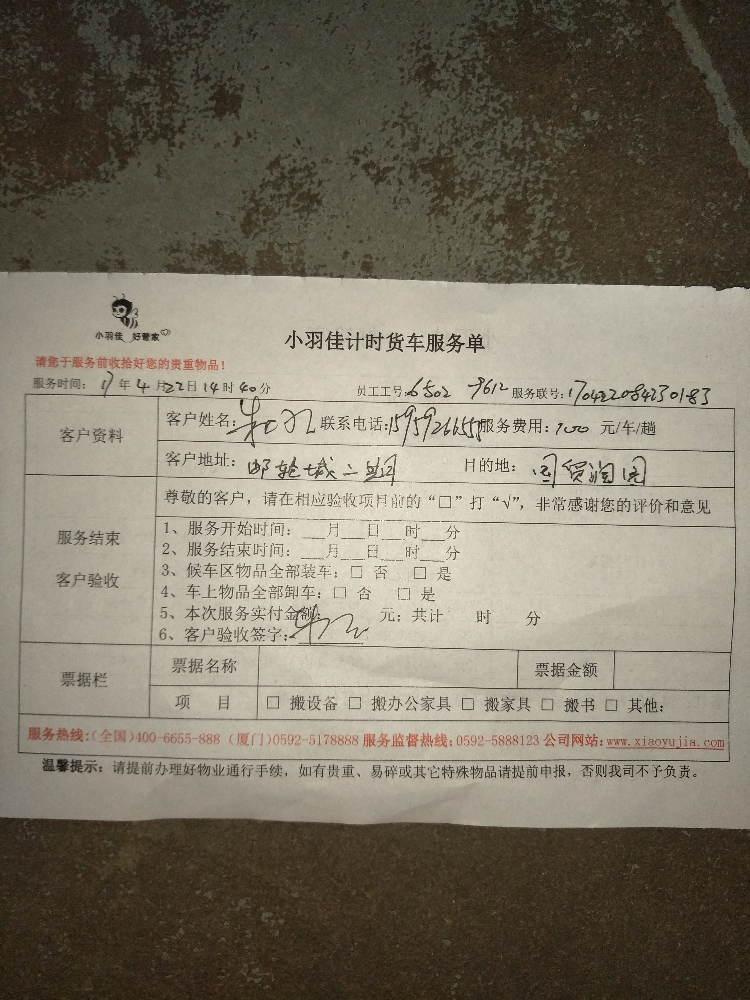 小羽佳 好管家
小羽佳计时货车服务单
请您于服务前收拾好您的贵重物品！
服务时间：17年4月22日14时40分 员工工号：6502 9612 服务联号：170422084230183
客户资料
客户姓名： 联系电话： 服务费用： 元/车/趟
客户地址：邮轮城二期 目的地：国贸润园
服务结束
客户验收
尊敬的客户，请在相应验收项目前的“□”打“√”，非常感谢您的评价和意见
1、服务开始时间：___月___日___时___分
2、服务结束时间：___月___日___时___分
3、候车区物品全部装车：□ 否 □ 是
4、车上物品全部卸车：□ 否 □ 是
5、本次服务实付金额： 元；共计 时 分
6、客户验收签字：
票据栏
票据名称 票据金额
项 目 □ 搬设备 □ 搬办公家具 □ 搬家具 □ 搬书 □ 其他：
服务热线：（全国）400-6655-888（厦门）0592-5178888 服务监督热线：0592-5888123 公司网站：www.xiaoyujia.com
温馨提示：请提前办理好物业通行手续，如有贵重、易碎或其它特殊物品请提前申报，否则我司不予负责。